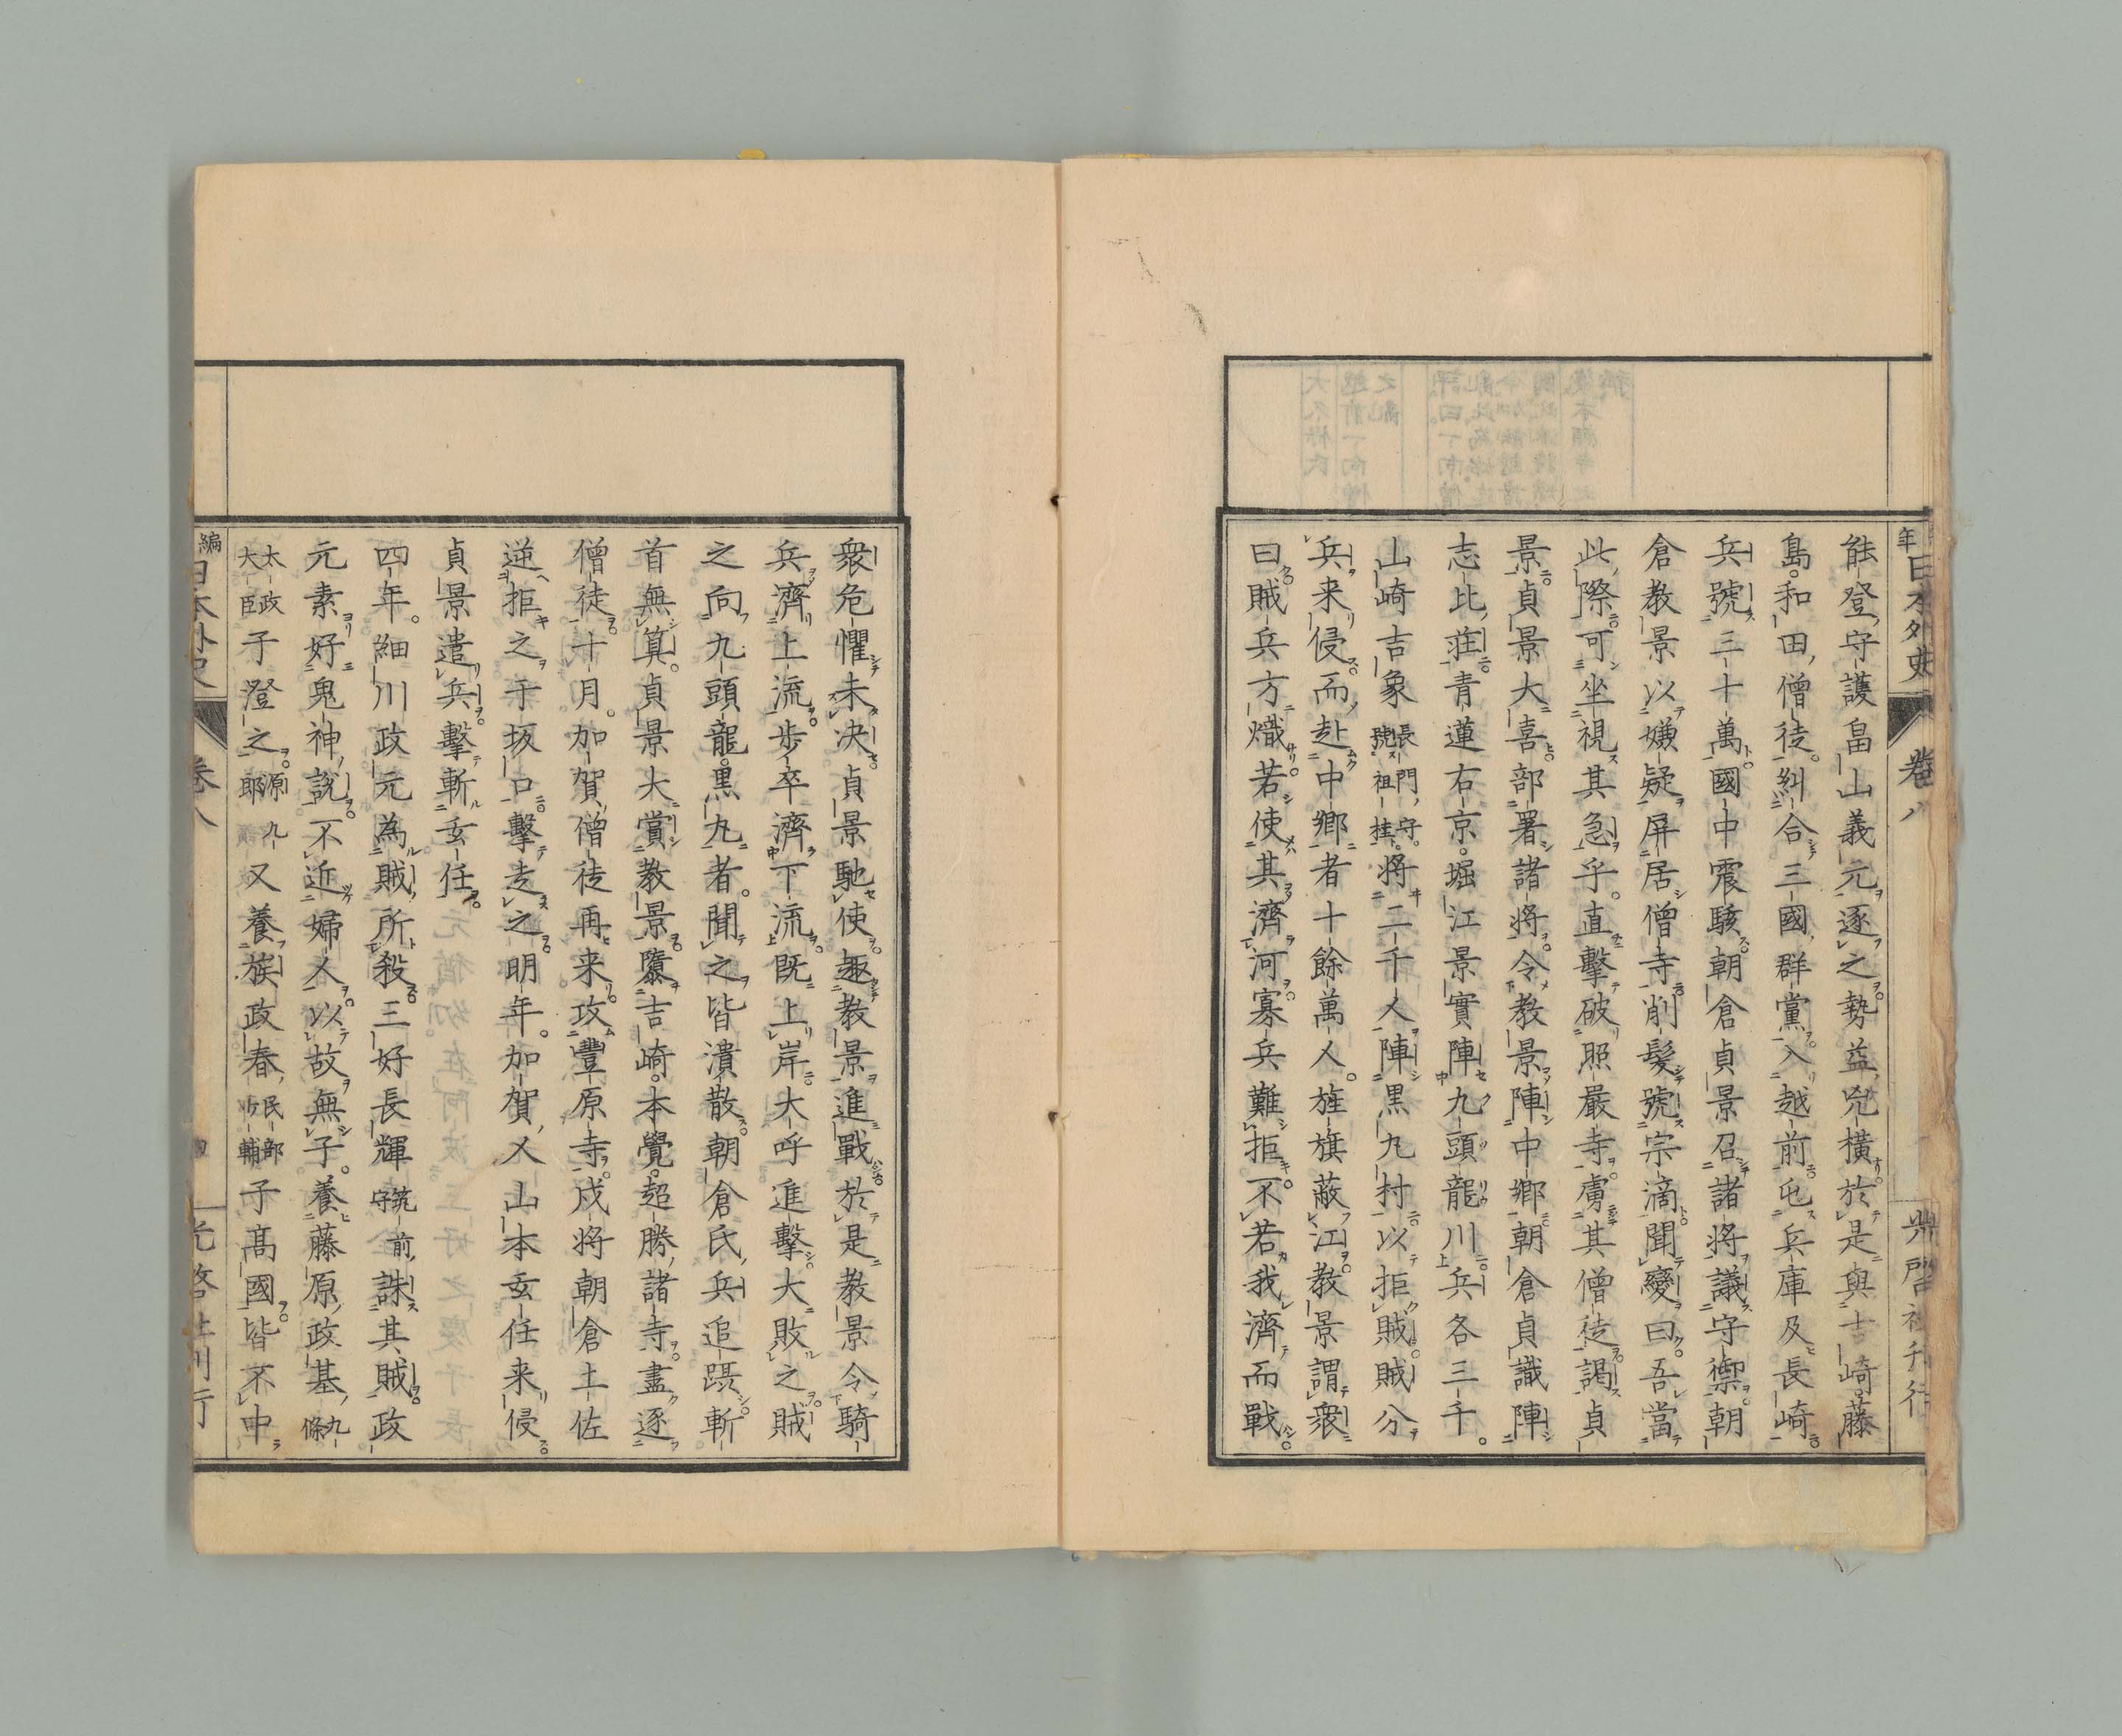 年日本外史 卷八 光啓社刊行
能登守護畠山義元逐之勢益兇橫於是與吉崎藤
島和田僧徒糾合三國群黨入越前屯兵庫及長崎
兵號三十萬國中震駭朝倉貞景召諸將議守禦朝
倉教景以嫌疑屏居僧寺削髮號宗滴聞變曰吾當
此際可坐視其急乎直擊破照嚴寺虜其僧徒謁貞
景貞景大喜部署諸將令教景陣中鄉朝倉貞識陣
志比莊青蓮右京堀江景實陣九頭龍川兵各三千
山崎吉象長門守號祖桂將二千人陣黑九村以拒賊賊分
兵来侵而赴中鄉者十餘萬人旌旗蔽江教景謂衆
曰賊兵方熾若使其濟河寡兵難拒不若我濟而戰
衆危懼未决貞景馳使趣教景進戰於是教景令騎
兵濟上流步卒濟下流既上岸大呼進擊大敗之賊
之向九頭龍黑九者聞之皆潰散朝倉氏兵追躡斬
首無算貞景大賞教景隳吉崎本覺超勝諸寺盡逐
僧徒十月加賀僧徒再来攻豐原寺戍將朝倉土佐
逆拒之于坂口擊走之明年加賀人山本玄任来侵
貞景遣兵擊斬玄任
四年細川政元為賊所殺三好長輝筑前守誅其賊政
元素好鬼神說不近婦人以故無子養藤原政基九條
太政大臣子澄之源九郎又養族政春民部少輔子高國皆不中
編日本外史 卷八 四 光啓社刊行